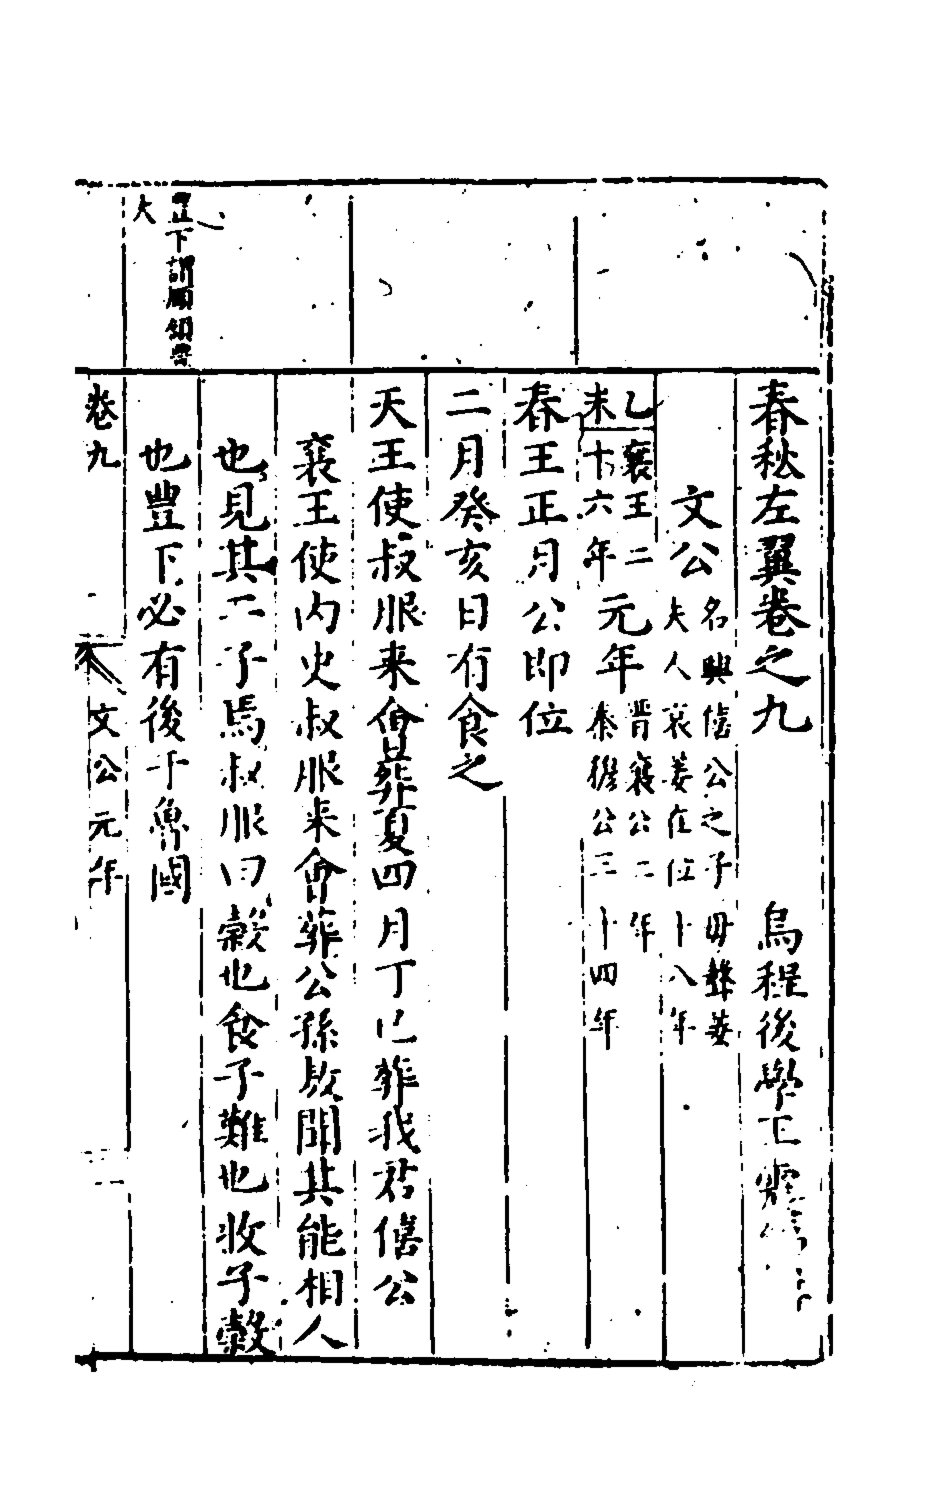 春秋左翼卷之九　烏程後學王
文公名興僖公之子母聲姜
夫人哀姜在位十八年
乙未襄王二十六年元年晉襄公二年
秦穆公三十四年
春王正月公即位
二月癸亥日有食之
天王使叔服来會葬夏四月丁巳葬我君僖公
襄王使内史叔服来會葬公孫敖聞其能相人
也見其二子焉叔服曰穀也食子難也收子穀
也豐下必有後于魯國
豊下謂頤頷豊
大
卷九
文公元年